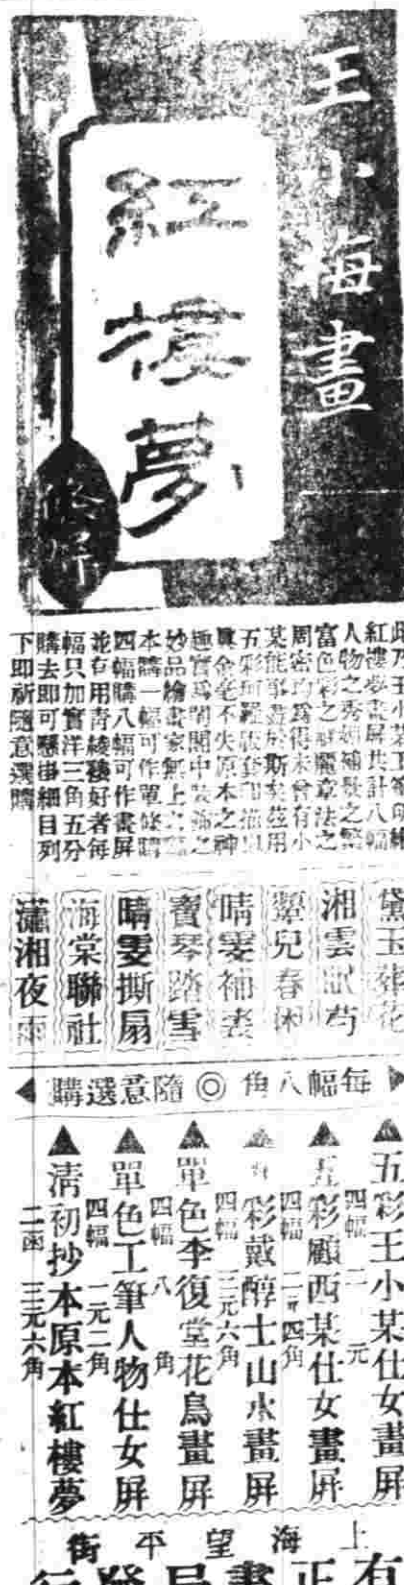 王小梅畫
紅樓夢
條屏
紅樓夢畫屏共計八幅
人物之秀麗補景之繁
富色彩之鮮麗章法之
周密均爲得未曾有小
某能事盡於斯矣茲用
五彩珂羅版套印描
眞金毫不失原本之神
趣實爲閨閣中裝飾之
妙品繪畫家無上之
本購一幅可作單條購
四幅購八幅可作畫屏
並有用靑綾裱好者每
幅只加實洋三角五分
購去卽可懸掛細目列
下卽祈隨意選購
黛玉葬花
湘雲眠芍
顰兒春困
晴雯補裘
寶琴踏雪
晴雯撕扇
海棠聯社
瀟湘夜雨
每幅八角◎隨意選購
▲五彩王小某仕女畫屏
四幅 元
▲五彩顧西某仕女畫屏
四幅 四角
▲彩戴醇士山水畫屏
四幅 元六角
▲單色李復堂花鳥畫屏
四幅 八角
▲單色工筆人物仕女屏
四幅 一元二角
▲淸初抄本原本紅樓夢
二函 三元六角
上海望平街
有正書局發行